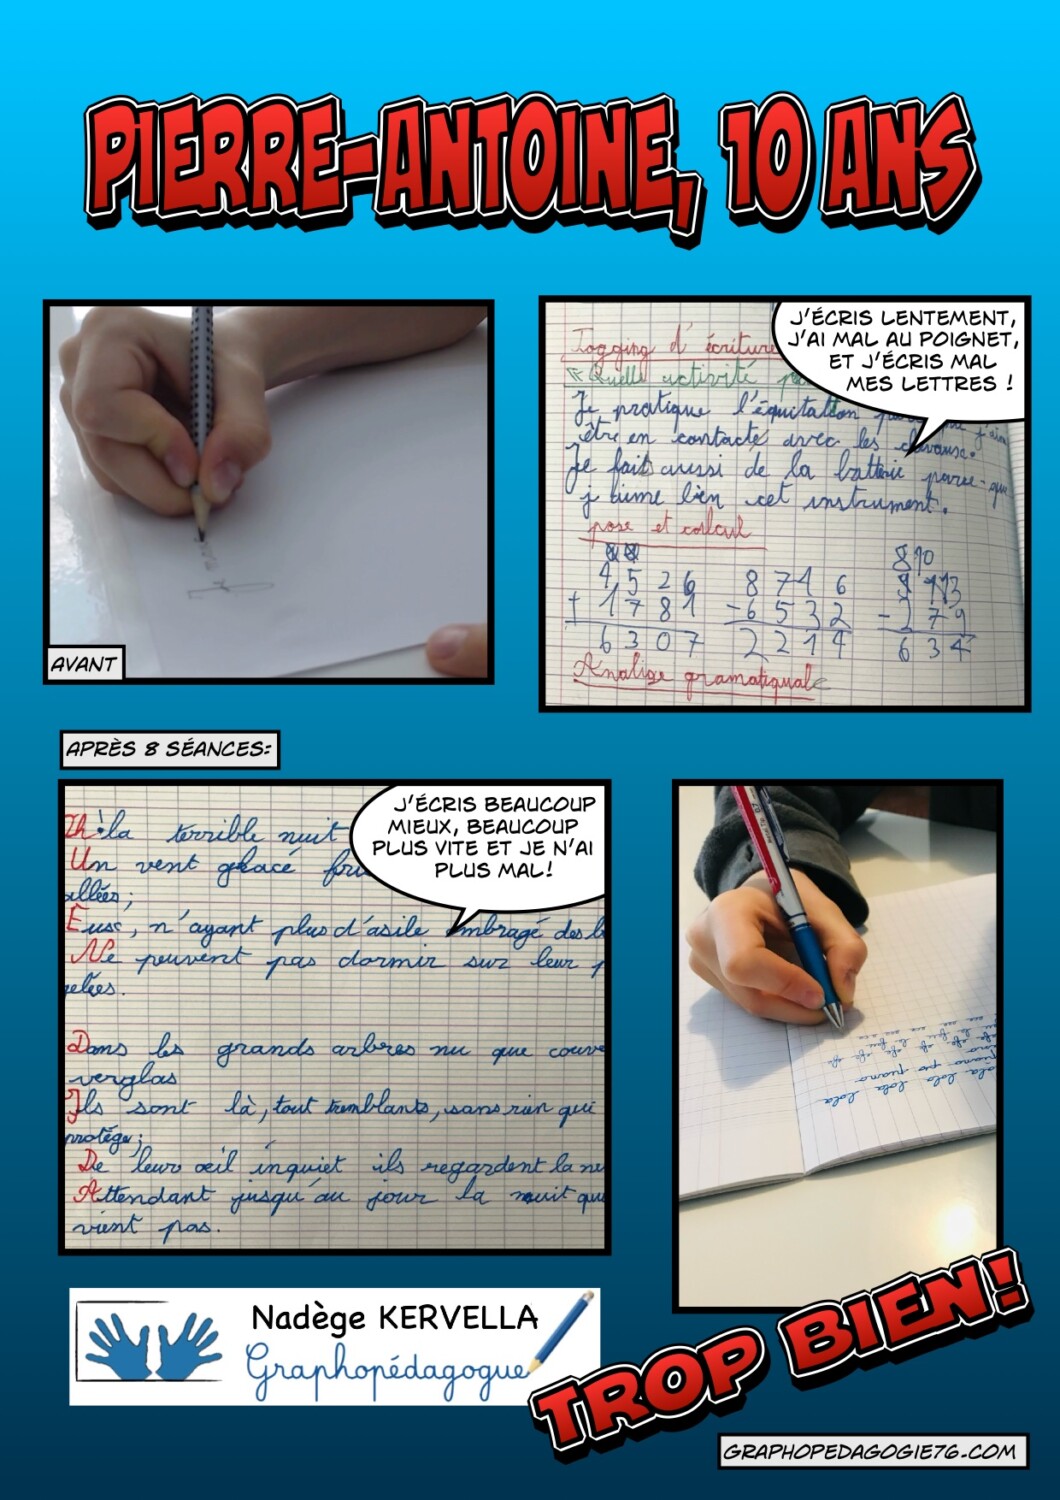 PIERRE-ANTOINE, 10 ANS
AVANT
J'ÉCRIS LENTEMENT,
J'AI MAL AU POIGNET,
ET J'ÉCRIS MAL
MES LETTRES !
Jogging d'écriture
Quelle activité
Je pratique l'équitation
être en contacte avec les
Je fait aussi de la batterie parce-que
j'aime bien cet instrument.
pose et calcul
8 10
4 5 2 6 8 7 4 6
+ 1 7 8 1 - 6 5 3 2 - 2 7 9
6 3 0 7 2 2 1 4 6 3 4
Analise gramatiquale
APRÈS 8 SÉANCES:
J'ÉCRIS BEAUCOUP
MIEUX, BEAUCOUP
PLUS VITE ET JE N'AI
PLUS MAL!
la terrible nuit
Un vent glacé
allées;
Eux, n'ayant plus d'asile ombragé des
Ne peuvent pas dormir sur leur
gelées.
Dans les grands arbres nu que couvre
verglas
Ils sont là, tout tremblants, sans rien qui
protége;
De leur œil inquiet ils regardent la
Attendant jusqu'au jour la nuit qui
vient pas.
lola lola
piano
Nadège KERVELLA
Graphopédagogue
TROP BIEN!
GRAPHOPEDAGOGIE76.COM